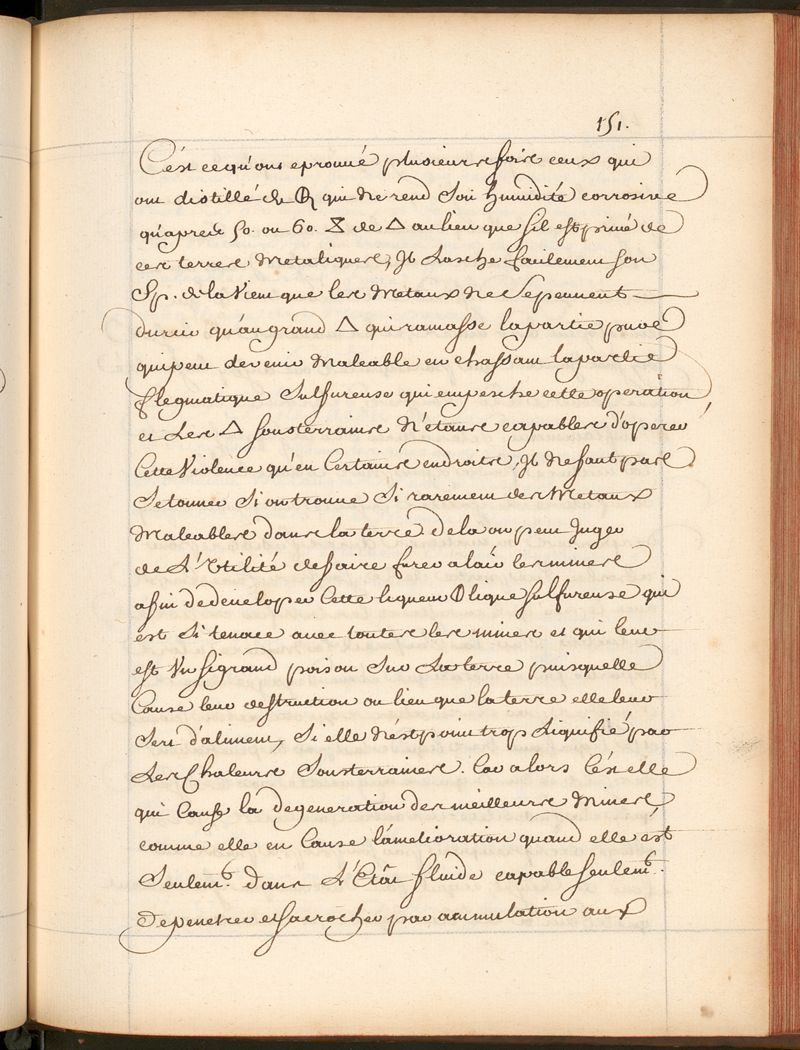 151.
C'est ce qu'ont eprouué plusieures fois ceux qui
ont distillé du qui ne rend son humidité corrosiue
qu'apres 50. ou 60. ⧖ de △ au lieu que s'il est priué de
ces terres Metaliques, Jl Lasche facilement son
Sp. de la Vient que les Metaux ne Se peuuent
durcir qu'au grand △ qui ramasse la partie pure
qui peut devenir Maleable en chassant la partie
flegmatique Sulfureuse qui empesche cette operation
et Les △ Sousterraines N'étants capables d'operer
Cette Violence qu'en Certains endroits, Jl ne faut pas
Setonner Si on trouue Si rarement des Metaux
Maleables dans la terre de la on peut Juger
de L'Vtilité de faire furer a l'air les mines
afin de deueloper Cette liqueur Sulfureuse qui
est Si tenace auec toutes les mines et qui leur
est Vn si grand poison Sur La terre puisquelle
Cause leur destruction au lieu que la terre elle leur
Sert d'aliment, Si elle n'est point trop Lignifié par
Les Chaleurs Sousterraines. Car alors C'est elle
qui Cause la degeneration des meilleures Mines,
comme elle en Cause l'amelioration quand elle est
Seulem.t Dans L'Etat fluide capable seulem.t
De penetrer et s'acrocher par acumulation aux